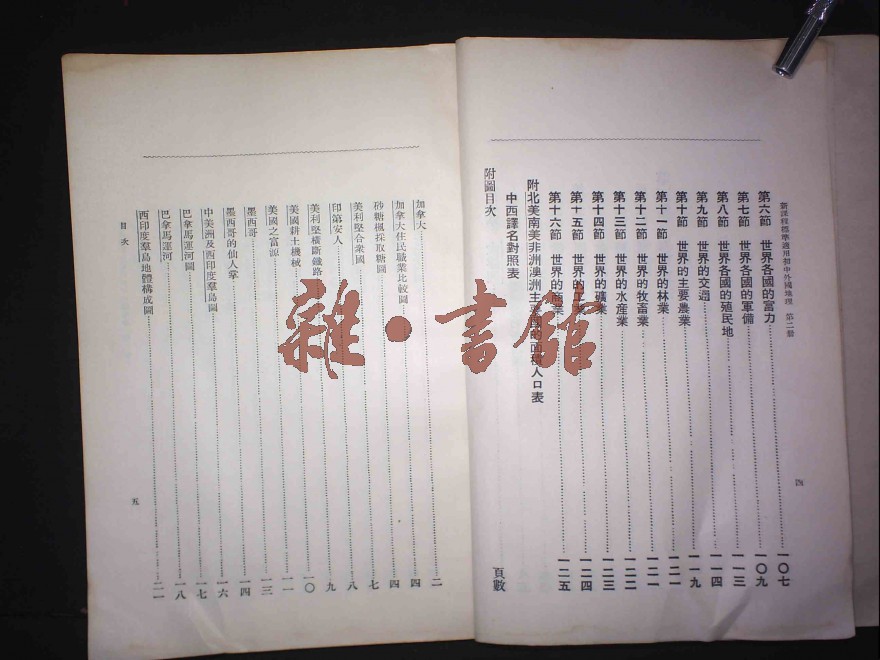 新課程標準適用初中外國地理 第二册
四
第六節 世界各國的富力 一〇七
第七節 世界各國的軍備 一〇九
第八節 世界各國的殖民地 一一三
第九節 世界的交通 一一四
第十節 世界的主要農業 一一九
第十一節 世界的林業 一二一
第十二節 世界的牧畜業 一二一
第十三節 世界的水産業 一二二
第十四節 世界的礦業 一二三
第十五節 世界的工業 一二四
第十六節 世界的商業 一二五
附北美南美非洲澳洲主要國的面積人口表
中西譯名對照表
附圖目次 頁數
加拿大 二
加拿大住民職業比較圖 四
砂糖楓採取糖圖 七
美利堅合衆國 八
印第安人 九
美利堅橫斷鐵路 一〇
美國耕土機械 一一
美國之富源 一三
墨西哥 一四
墨西哥的仙人掌 一六
中美洲及西印度羣島圖 一七
巴拿馬運河圖
巴拿馬運河 一八
西印度羣島地體構成圖 二一
目次
五
雜·書館